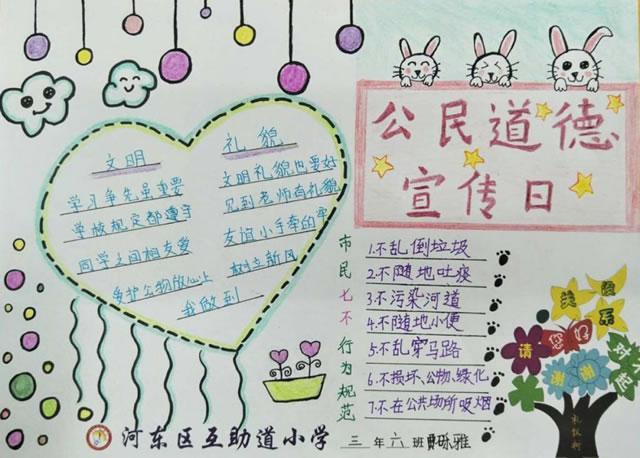 公民道德
宣传日
文明 礼貌
学习争先虽重要 文明礼貌也要好
学校规定都遵守 见到老师有礼貌
同学之间相友爱 友谊小手牵的牢
爱护公物放心上 树立新风
我做到
市民七不行为规范
1.不乱倒垃圾
2.不随地吐痰
3.不污染河道
4.不随地小便
5.不乱穿马路
6.不损坏、公物、绿化
7.不在公共场所吸烟
请
你好
谢谢
对不起
礼仪树
河东区互助道小学
三年六班